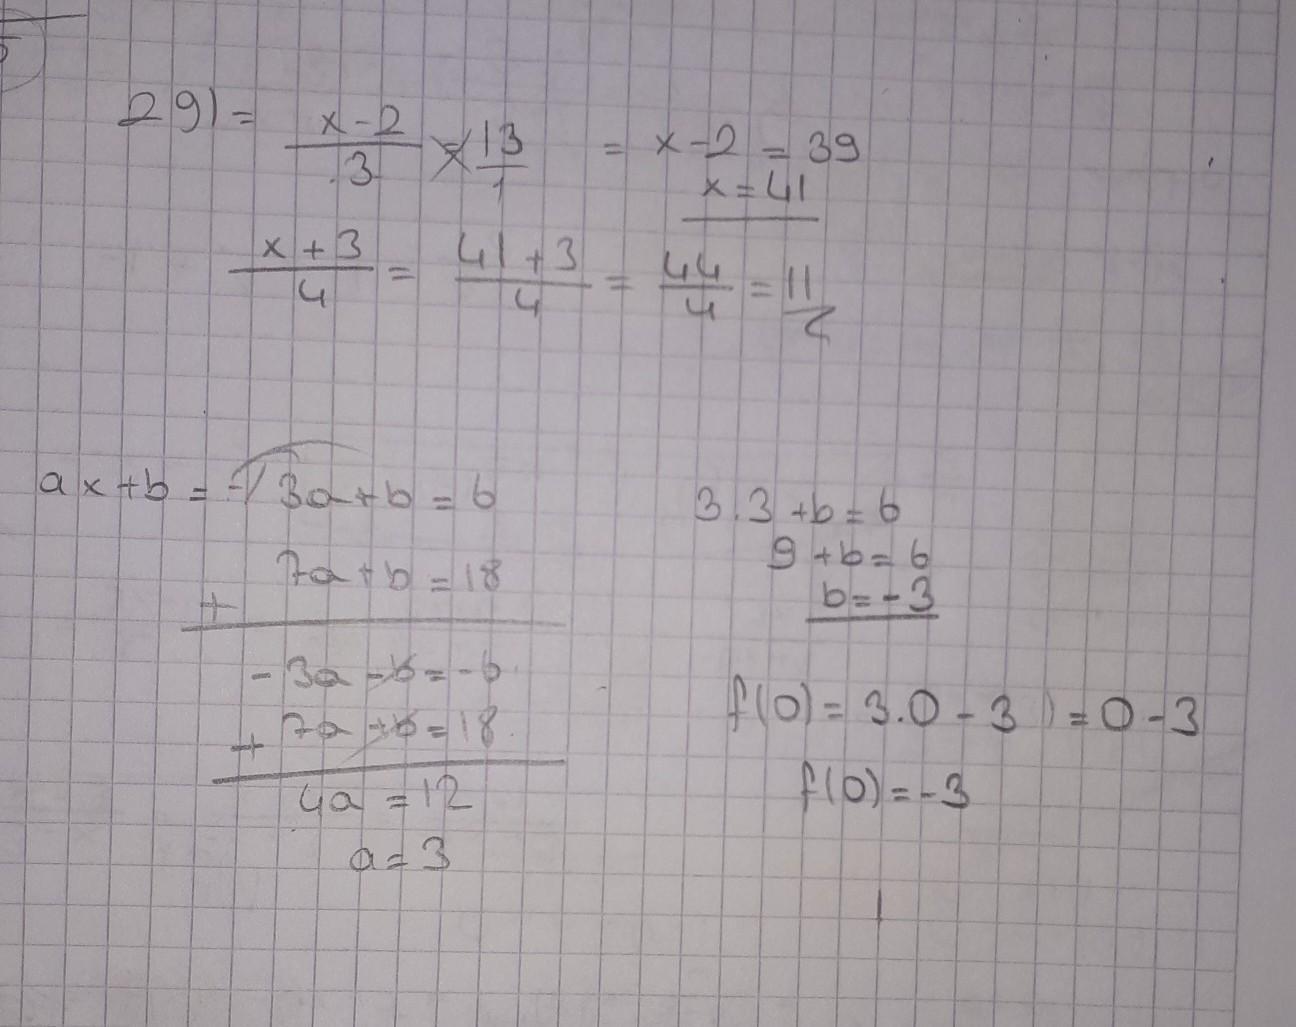 29) = x-2/3 = 13/1 = x-2 = 39
x = 41
x+3/4 = 41+3/4 = 44/4 = 11
ax+b = -/ 3a+b = 6
7a+b = 18
+
-3a-b = -6
+ 7a+b = 18
4a = 12
a = 3
3.3+b = 6
9+b = 6
b = -3
f(0) = 3.0-3 ) = 0-3
f(0) = -3